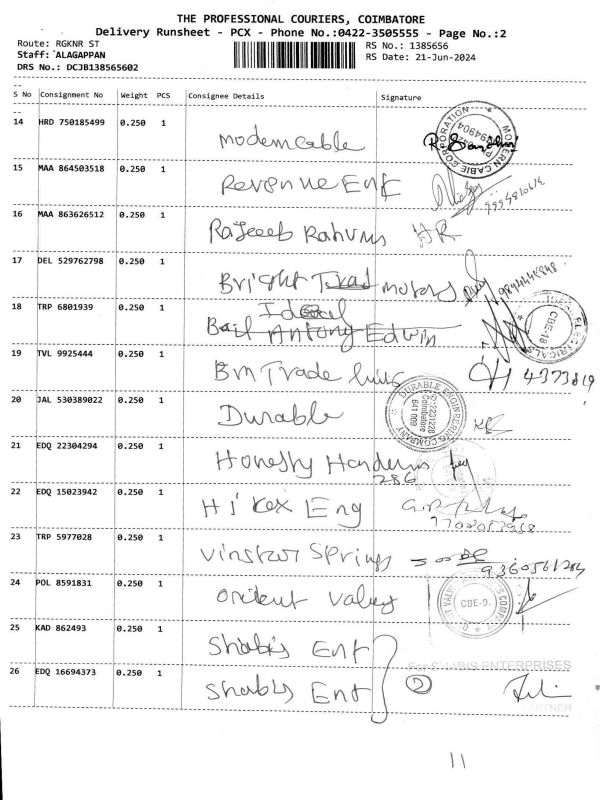 THE PROFESSIONAL COURIERS, COIMBATORE
Delivery Runsheet - PCX - Phone No.:0422-3505555 - Page No.:2
Route: RGKNR ST RS No.: 1385656
Staff: ALAGAPPAN RS Date: 21-Jun-2024
DRS No.: DCJB138565602
S No Consignment No Weight PCS Consignee Details Signature
14 HRD 750185499 0.250 1 modern cable
MODERN CABLE CORPORATION
15 MAA 864503518 0.250 1 Revenue Ent
16 MAA 863626512 0.250 1 Rajeeb Rahums
17 DEL 529762798 0.250 1 Bright Trad motors
Ideal
18 TRP 6801939 0.250 1 Bail Antony Edwin
ELECTRICALS CBE-18
19 TVL 9925444 0.250 1 Bm Trade links 4373819
20 JAL 530389022 0.250 1 Durable
DURABLE ENGINEERING COMPANY
Coimbatore
641 009
21 EDQ 22304294 0.250 1 Honesty
286
22 EDQ 15023942 0.250 1 Hi rex Eng
23 TRP 5977028 0.250 1 Vinstar Springs
9360561284
24 POL 8591831 0.250 1 orient valves
CBE-9.
25 KAD 862493 0.250 1 Shabis Ent
For SHABIS ENTERPRISES
26 EDQ 16694373 0.250 1 Shabis Ent 2
PARTNER
11